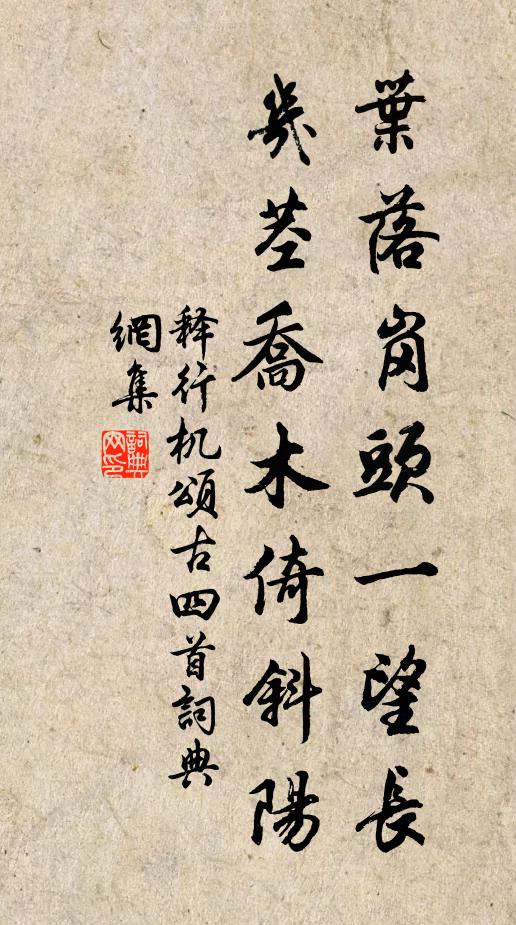 葉落崗頭一望長
幾茎喬木倚斜陽
释行机頌古四首詞典
網集
詞典
网印